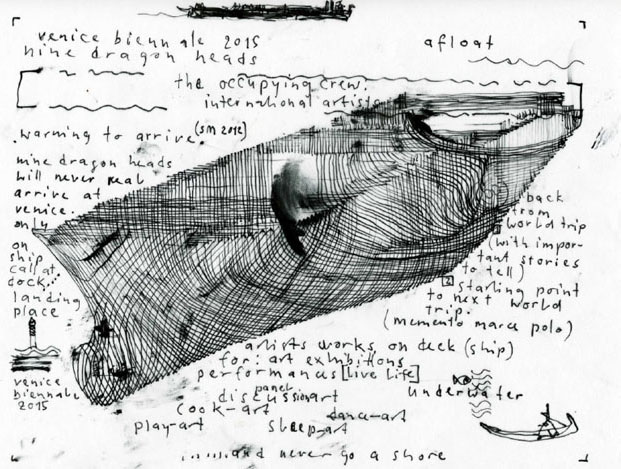 venice biennale 2015
nine dragon heads
afloat
the occupying crew.
international artists
.warming to arrive. (SM 2012)
nine dragon heads
will never real
arrive at
venice.
only
on
ship
call at
dock..
landing
place
venice
biennale
2015
back
from
world trip
(with impor-
tant stories
to tell)
starling point
to next world
trip.
(memento marco polo)
artists works on deck (ship)
for: art exhibitions
performances [live life]
panel
discussionart
cook-art
dance-art
play-art
sleep-art
underwater
......and never go a shore